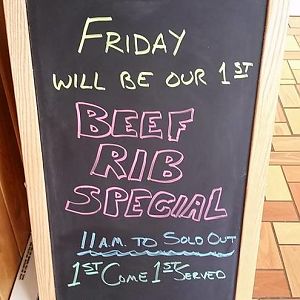 FRIDAY
WILL BE OUR 1ST
BEEF
RIB
SPECIAL
11 A.M. TO SOLD OUT
1ST COME 1ST SERVED